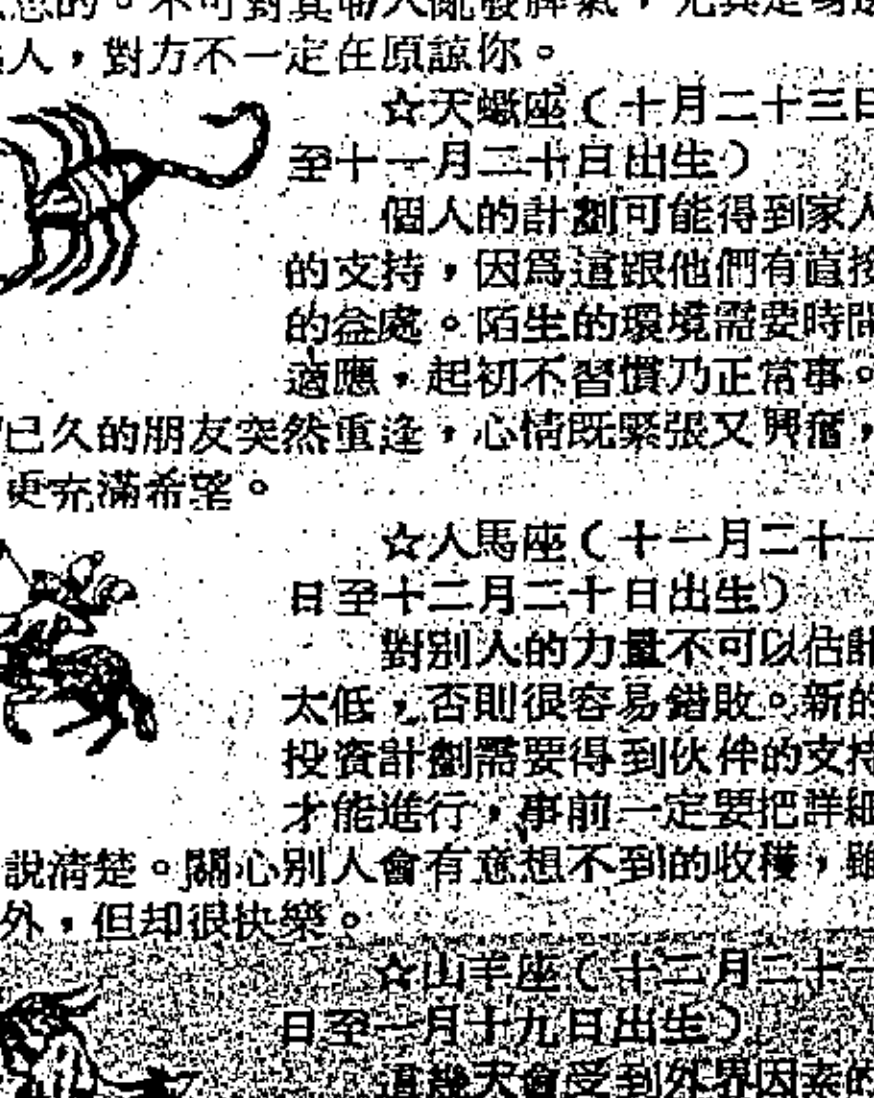 的。不可對其他人亂發脾氣，尤其是
人，對方不一定在原諒你。
☆天蠍座（十月二十三日
至十一月二十日出生）
個人的計劃可能得到家人
的支持，因爲這跟他們有直接
的益處。陌生的環境需要時間
適應，起初不習慣乃正常事。
已久的朋友突然重逢，心情既緊張又興奮，
更充滿希望。
☆人馬座（十一月二十一
日至十二月二十日出生）
對别人的力量不可以估計
太低，否則很容易錯敗。新的
投資計劃需要得到伙伴的支持
才能進行，事前一定要把詳細
說清楚。關心别人會有意想不到的收穫，雖
外，但却很快樂。
☆山羊座（十二月二十一
日至一月十九日出生）
這幾天會受到外界因素的